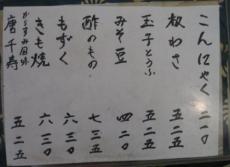 こんにゃく 二一〇
板わさ 五二五
玉子とうふ 五二五
みそ豆 四二〇
酢のもの 七三五
もずく 六三〇
きも焼 六三〇
唐千寿 五二五